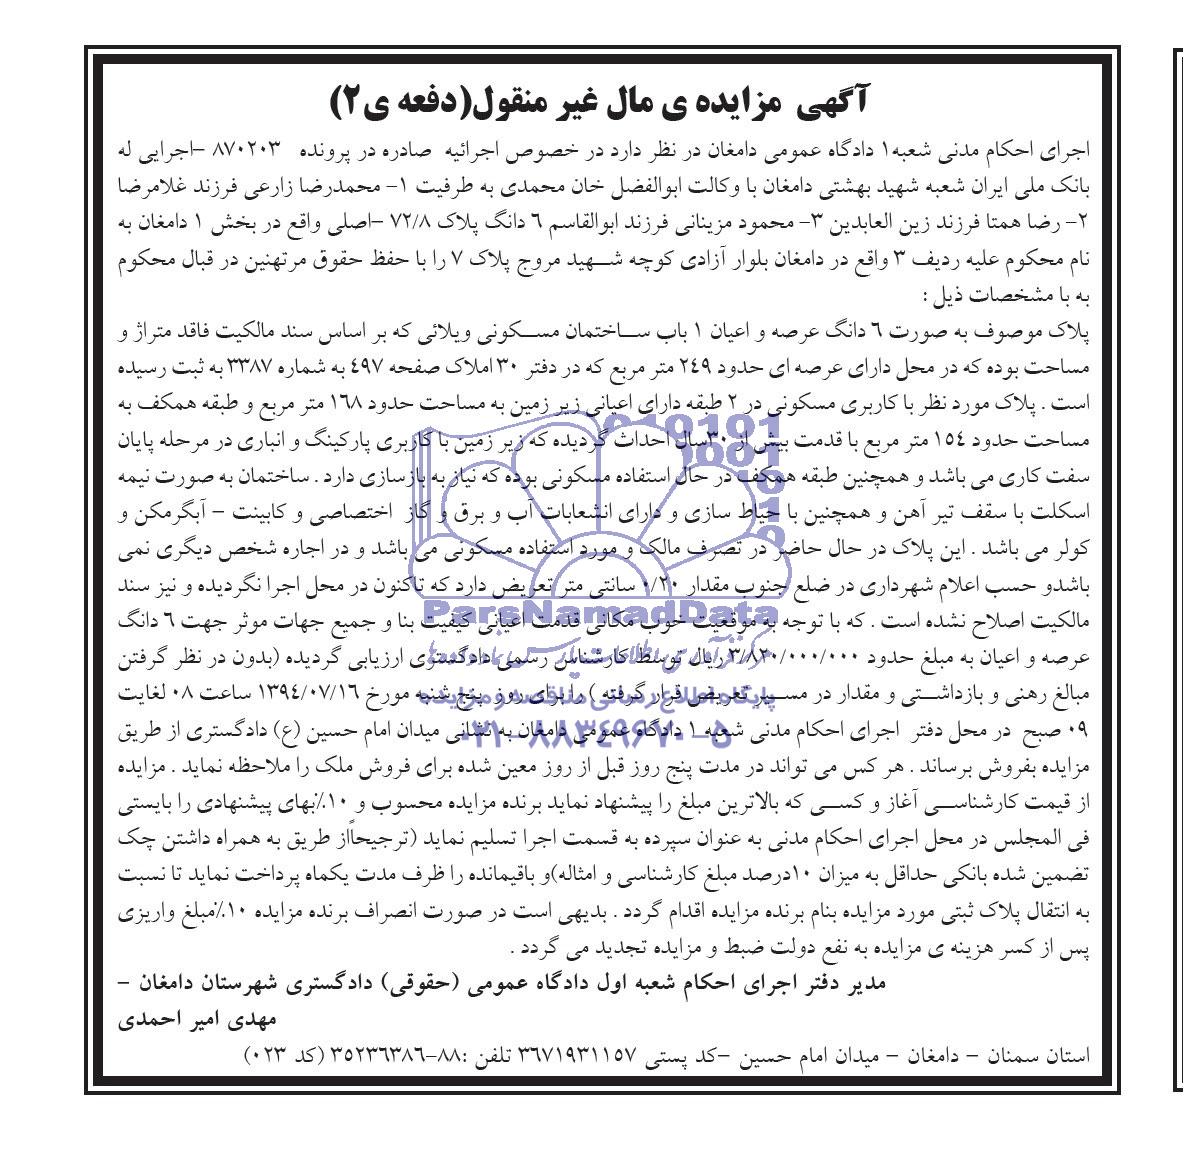 آگهی مزایده ی مال غیر منقول(دفعه ی۲)
اجرای احکام مدنی شعبه۱ دادگاه عمومی دامغان در نظر دارد در خصوص اجرائیه صادره در پرونده ۸۷۰۲۰۳ –اجرایی له
بانک ملی ایران شعبه شهید بهشتی دامغان با وکالت ابوالفضل خان محمدی به طرفیت ۱- محمدرضا زارعی فرزند غلامرضا
۲- رضا همتا فرزند زین العابدین ۳- محمود مزینانی فرزند ابوالقاسم ۶ دانگ پلاک ۷۲/۸ –اصلی واقع در بخش ۱ دامغان به
نام محکوم علیه ردیف ۳ واقع در دامغان بلوار آزادی کوچه شهید مروج پلاک ۷ را با حفظ حقوق مرتهنین در قبال محکوم
به با مشخصات ذیل :
پلاک موصوف به صورت ۶ دانگ عرصه و اعیان ۱ باب ساختمان مسکونی ویلائی که بر اساس سند مالکیت فاقد متراژ و
مساحت بوده که در محل دارای عرصه ای حدود ۲۴۹ متر مربع که در دفتر ۳۰ املاک صفحه ۴۹۷ به شماره ۳۳۸۷ به ثبت رسیده
است . پلاک مورد نظر با کاربری مسکونی در ۲ طبقه دارای اعیانی زیر زمین به مساحت حدود ۱۶۸ متر مربع و طبقه همکف به
مساحت حدود ۱۵۴ متر مربع با قدمت بیش از ۳۰سال احداث گردیده که زیر زمین با کاربری پارکینگ و انباری در مرحله پایان
سفت کاری می باشد و همچنین طبقه همکف در حال استفاده مسکونی بوده که نیاز به بازسازی دارد . ساختمان به صورت نیمه
اسکلت با سقف تیر آهن و همچنین با حیاط سازی و دارای انشعابات آب و برق و گاز اختصاصی و کابینت – آبگرمکن و
کولر می باشد . این پلاک در حال حاضر در تصرف مالک و مورد استفاده مسکونی می باشد و در اجاره شخص دیگری نمی
باشدو حسب اعلام شهرداری در ضلع جنوب مقدار ۰/۲۰ سانتی متر تعریض دارد که تاکنون در محل اجرا نگردیده و نیز سند
ParsNamadData
مالکیت اصلاح نشده است . که با توجه به موقعیت خوب مکانی قدمت اعیانی کیفیت بنا و جمیع جهات موثر جهت ۶ دانگ
عرصه و اعیان به مبلغ حدود ۳/۸۲۰/۰۰۰/۰۰۰ ریال توسط کارشناس رسمی دادگستری ارزیابی گردیده (بدون در نظر گرفتن
مبالغ رهنی و بازداشتی و مقدار در مسیر تعریض قرار گرفته ) را برای روز پنج شنبه مورخ ۱۳۹۴/۰۷/۱۶ ساعت ۰۸ لغایت
پایگاه اطلاع رسانی مناقصه و مزایده
۰۹ صبح در محل دفتر اجرای احکام مدنی شعبه ۱ دادگاه عمومی دامغان به نشانی میدان امام حسین (ع) دادگستری از طریق
۰۲۱-۸۸۳۴۹۶۷۰-۵
مزایده بفروش برساند . هر کس می تواند در مدت پنج روز قبل از روز معین شده برای فروش ملک را ملاحظه نماید . مزایده
از قیمت کارشناسی آغاز و کسی که بالاترین مبلغ را پیشنهاد نماید برنده مزایده محسوب و ۱۰٪بهای پیشنهادی را بایستی
فی المجلس در محل اجرای احکام مدنی به عنوان سپرده به قسمت اجرا تسلیم نماید (ترجیحاًاز طریق به همراه داشتن چک
تضمین شده بانکی حداقل به میزان ۱۰درصد مبلغ کارشناسی و امثاله)و باقیمانده را ظرف مدت یکماه پرداخت نماید تا نسبت
به انتقال پلاک ثبتی مورد مزایده بنام برنده مزایده اقدام گردد . بدیهی است در صورت انصراف برنده مزایده ۱۰٪مبلغ واریزی
پس از کسر هزینه ی مزایده به نفع دولت ضبط و مزایده تجدید می گردد .
مدیر دفتر اجرای احکام شعبه اول دادگاه عمومی (حقوقی) دادگستری شهرستان دامغان –
مهدی امیر احمدی
استان سمنان – دامغان – میدان امام حسین –کد پستی ۳۶۷۱۹۳۱۱۵۷ تلفن :۸۸-۳۵۲۳۶۳۸۶ (کد ۰۲۳)